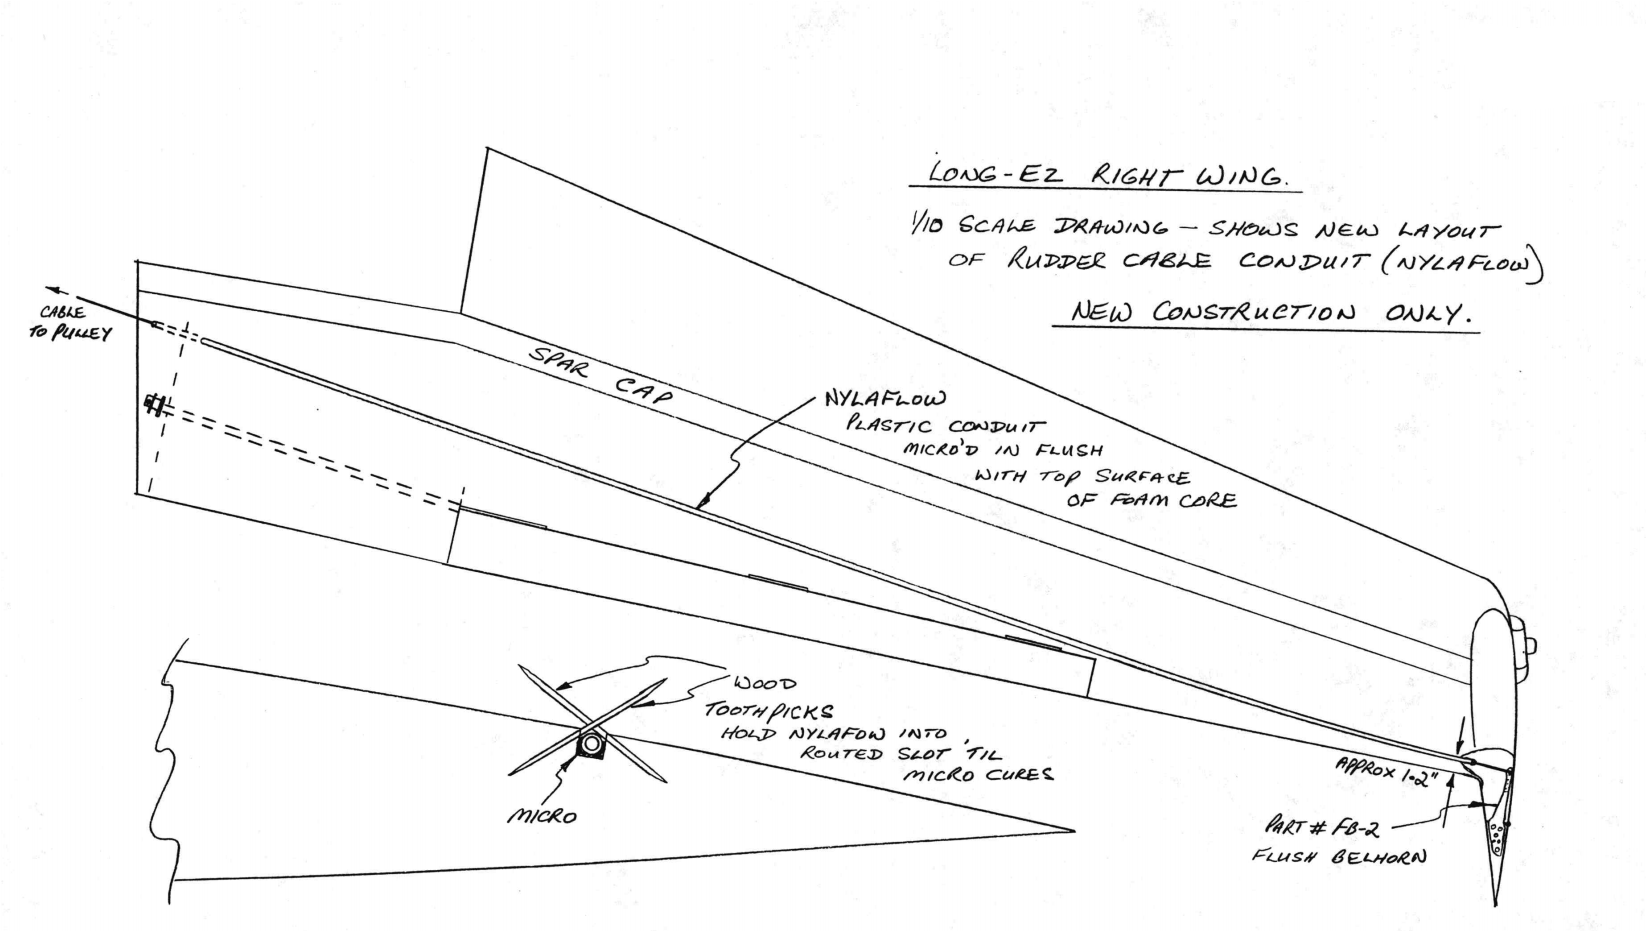 LONG-EZ RIGHT WING.
1/10 SCALE DRAWING - SHOWS NEW LAYOUT
OF RUDDER CABLE CONDUIT (NYLAFLOW)
NEW CONSTRUCTION ONLY.
CABLE
TO PULLEY
SPAR CAP
NYLAFLOW
PLASTIC CONDUIT
MICRO'D IN FLUSH
WITH TOP SURFACE
OF FOAM CORE
WOOD
TOOTHPICKS
HOLD NYLAFOW INTO
ROUTED SLOT 'TIL
MICRO CURES
MICRO
APPROX 1-2"
PART # FB-2
FLUSH BELHORN